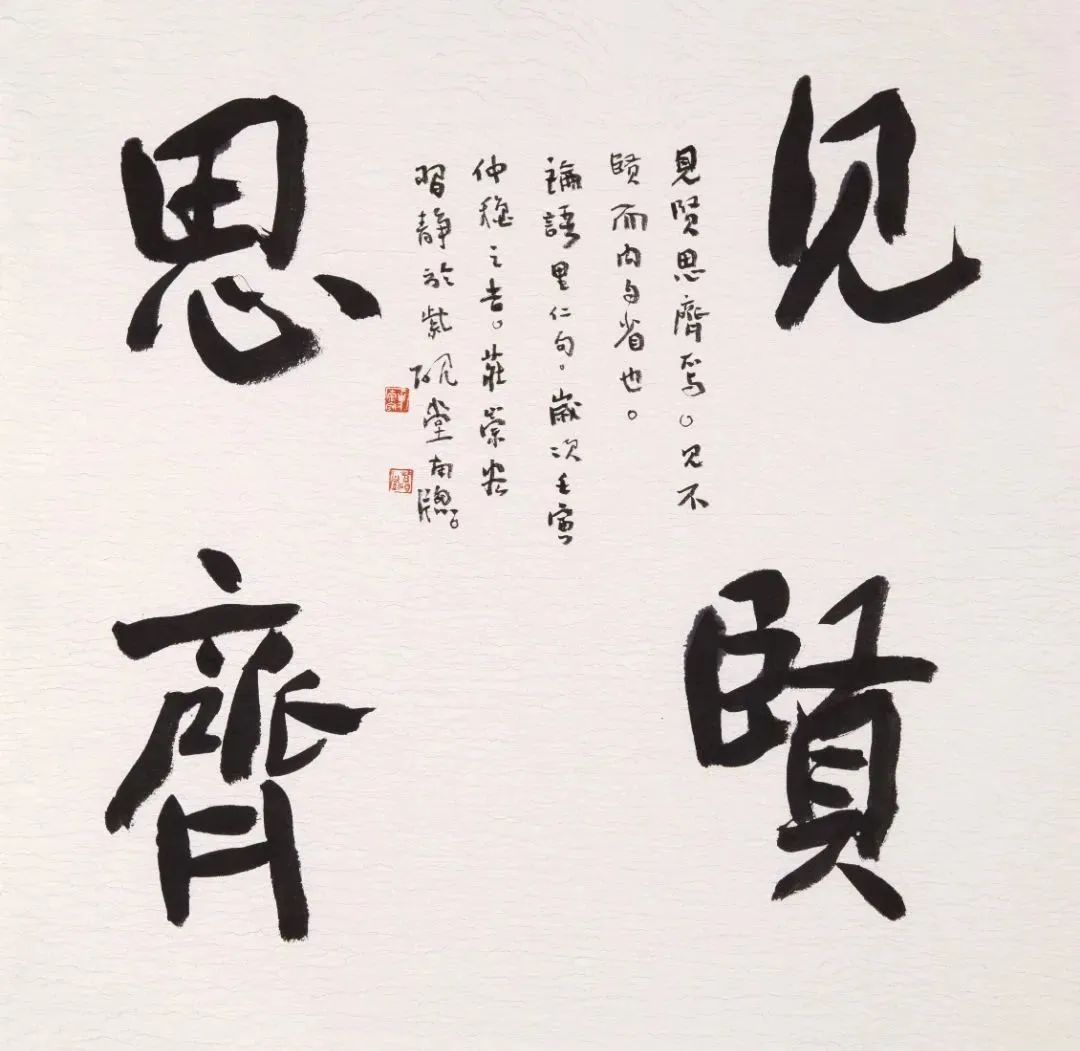 见賢
思齊
見賢思齊焉。见不
賢而内自省也。
論語里仁句。歲次壬寅
仲穐之吉。莊榮
習静於紫砚堂南牕。